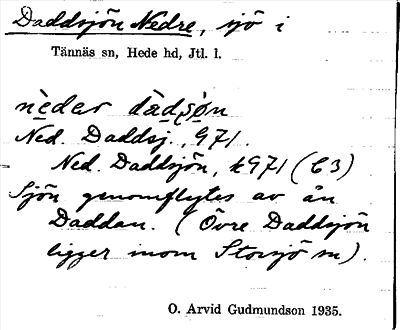 Daddsjön Nedre, sjö i
Tännäs sn, Hede hd, Jtl. l.
Ned. Daddsj., 971.
Ned. Daddsjön, k971 (C3)
Sjön genomflytes av ån
Daddan. (Övre Daddsjön
ligger inom Storsjö sn).
O. Arvid Gudmundson 1935.